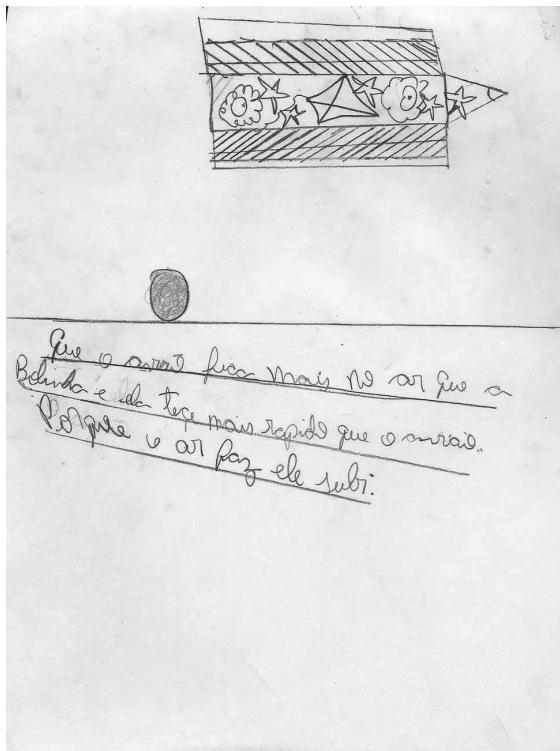 Que o avião fica mais no ar que a
Bolinha e ela tece mais rapido que o avião.
Porque o ar faz ele subi.